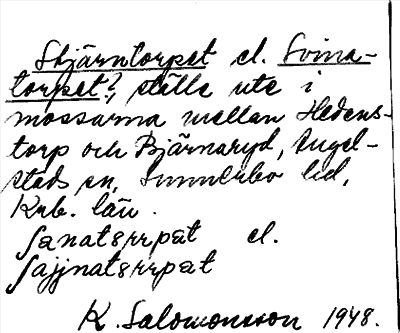 Skjärntorpet el. Svina-
torpet?, ställe ute i
mossarna mellan Hedens-
torp och Bjärnaryd, Angel-
stads sn, Sunnerbo hd,
Krb. län.
el.
K. Salomonsson 1948.